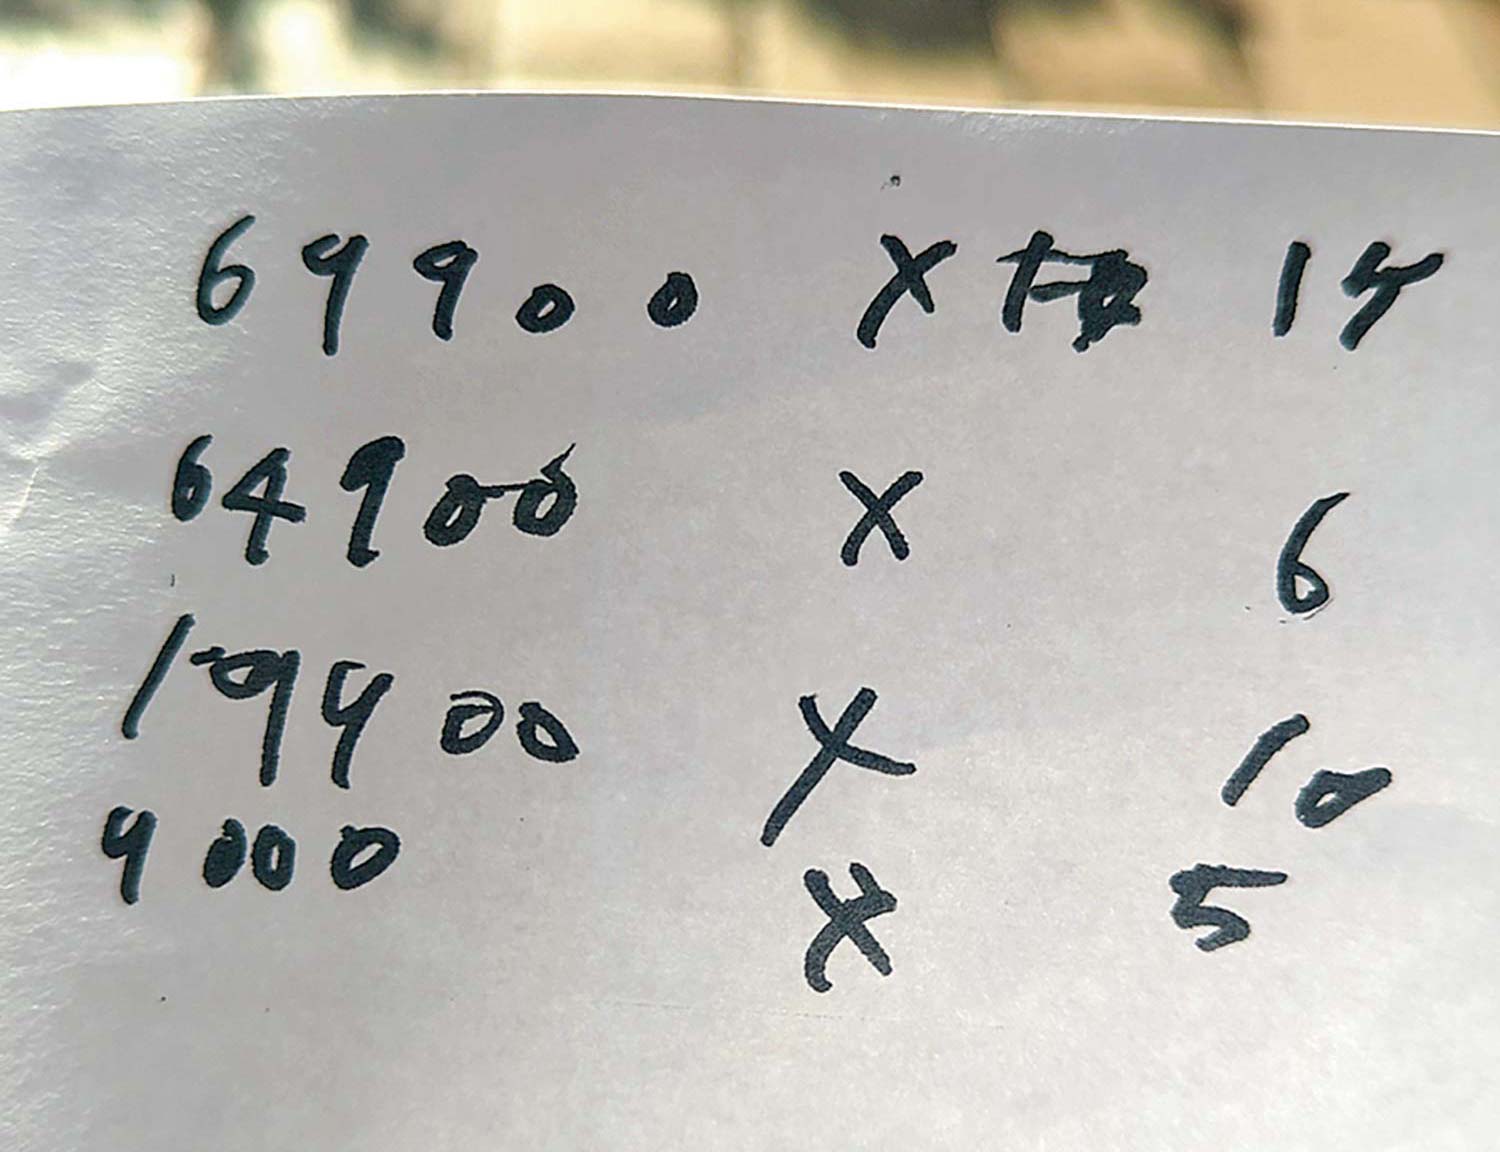 69900 x 14
64900 x 6
19900 x 10
9000 x 5